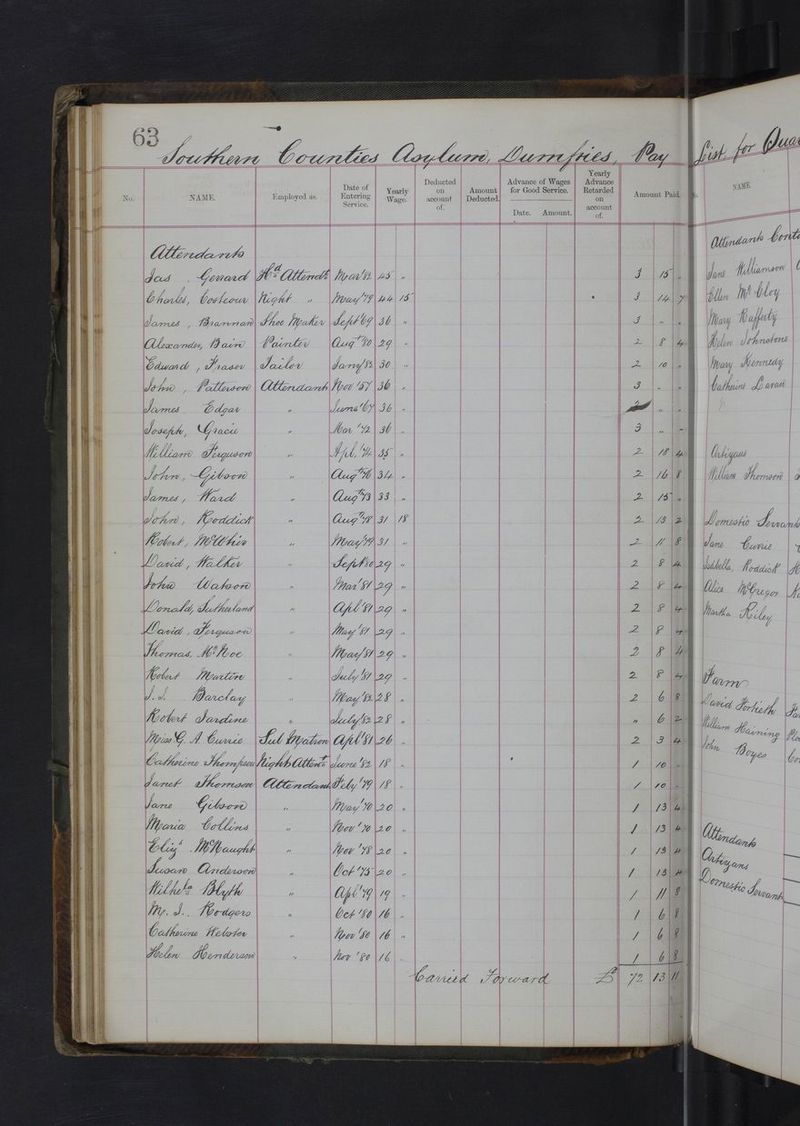 63
Southern Counties Asylum, Dumfries, Pay List for
No. NAME. Employed as. Date of Entering Service. Yearly Wage. Deducted on account of. Amount Deducted. Advance of Wages for Good Service. Date. Amount. Yearly Advance Retarded on account of. Amount Paid.
Attendants
Jas. Gerrard Hd. Attendt. Mar '82 45 " 3 15 "
Charles, Costcour Night " May '79 44 15 3 14 7
James, Brannan Shoe Maker Sept '69 36 " 3 " "
Alexander, Bain Painter Augt '80 29 " 2 8 4
Edward, Fraser Tailor Jany '82 30 " 2 10 "
John, Patterson Attendant Nov '57 36 " 3 " "
James Edgar " June '67 36 " " "
Joseph, Gracie " Mar '72 36 " 3 " "
William Ferguson " Apl. '74 35 " 2 18 4
John, Gibson " Augt '76 34 " 2 16 8
James, Ward " Augt '73 33 " 2 15 "
John, Roddick " Augt '78 31 18 2 13 2
Robert, McWhir " May '79 31 " 2 11 8
David, Walker " Sept '80 29 " 2 8 4
John Watson " Mar '81 29 " 2 8 4
Donald, Sutherland " Apl '81 29 " 2 8 4
David, Ferguson " May '81 29 " 2 8 4
Thomas, McNoe " May '81 29 " 2 8 4
Robert Martin " July '81 29 " 2 8 4
J. J. Barclay " May '82 28 " 2 6 8
Robert Jardine " July '82 28 " " 6 2
Miss G. A. Currie Sub Matron Apl '81 26 " 2 3 4
Catherine Thompson Night Attent. June '82 18 " 1 10 "
Janet Thomson Attendant Feby '79 18 " 1 10 "
Jane Gibson " May '70 20 " 1 13 4
Maria Collins " Nov '70 20 " 1 13 4
Elizt. McNaught " Nov '78 20 " 1 13 4
Susan Anderson " Oct '75 20 " 1 13 4
Wilhela. Blyth " Apl '79 19 " 1 11 8
Mg. J. Rodgers " Oct '80 16 " 1 6 8
Catherine Webster " Nov '80 16 " 1 6 8
Helen Henderson " Nov '80 16 " 1 6 8
Carried Forward £ 72 13 11
NAME.
Attendants
Jane Williamson
Ellen McCloy
Mary Rafferty
Helen Johnstone
Mary Kennedy
Catherine
Artizans
William Thomson
Domestic Servants
Jane Currie
Isabella Roddick
Alice McGregor
Martha Riley
Farm
David
William Haining
John Boyes
Attendants
Artizans
Domestic Servants